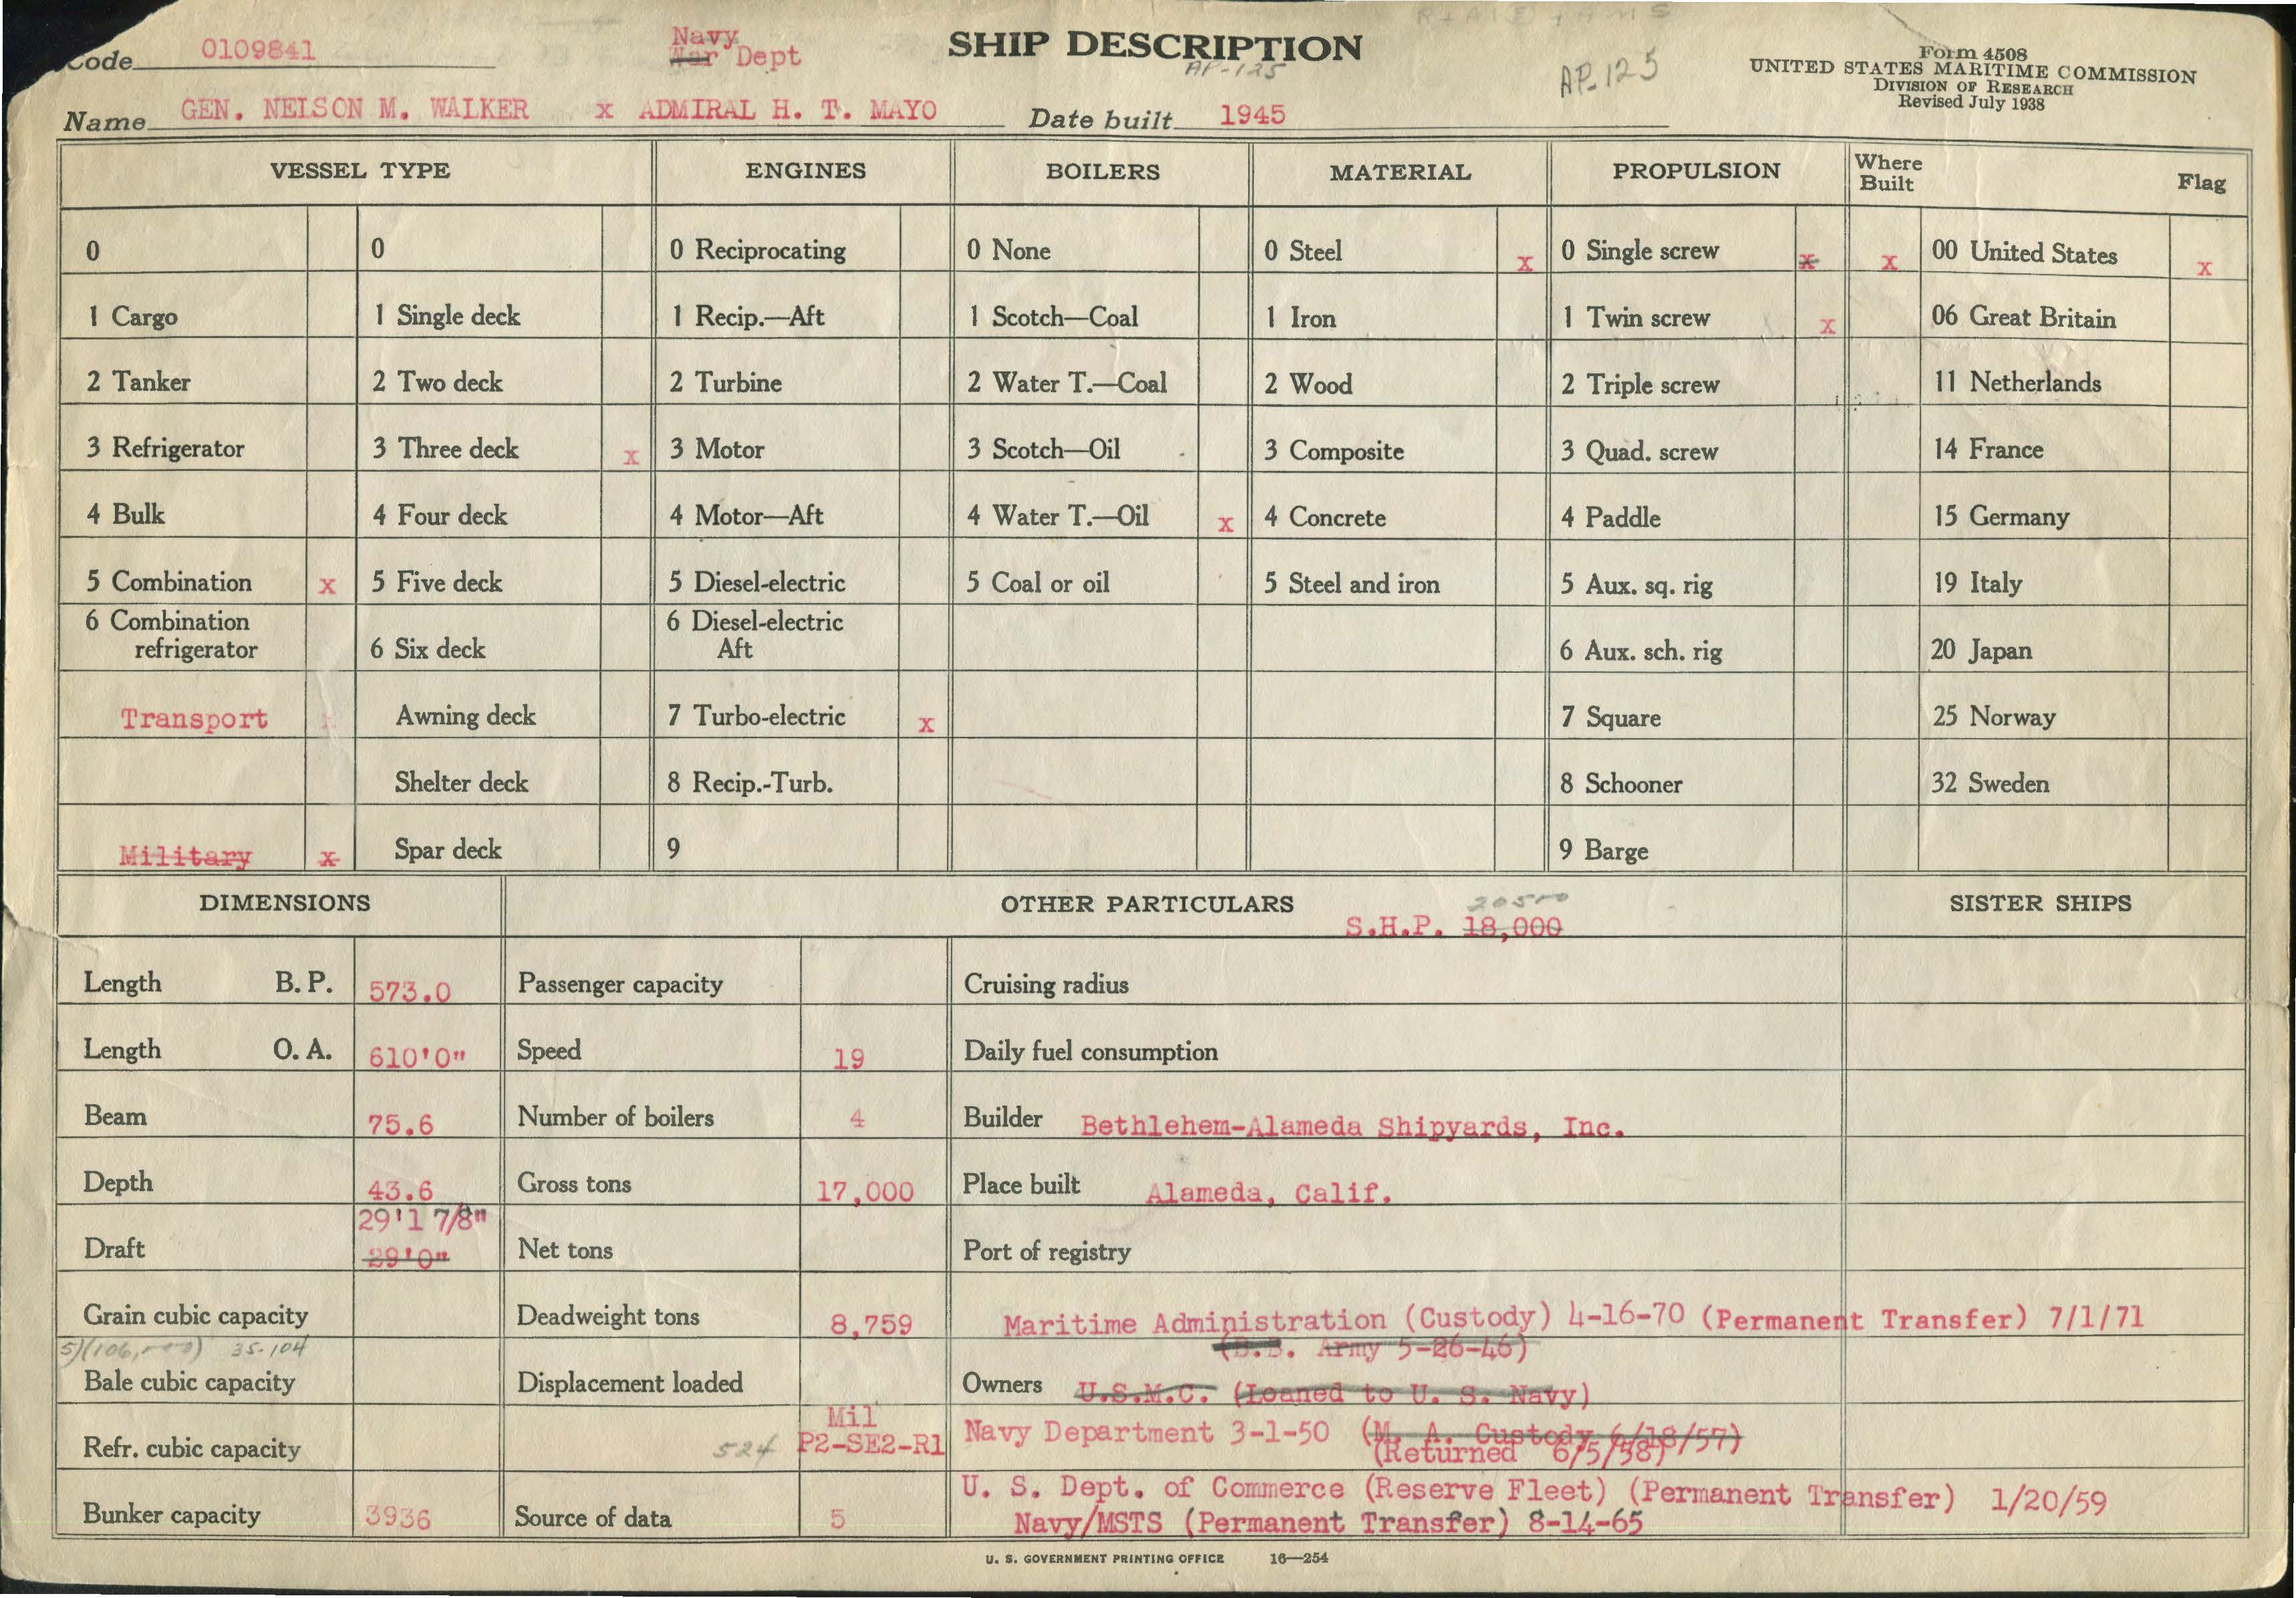 Code 0109841
Navy
War Dept
SHIP DESCRIPTION
AP-125
AP-125
Form 4508
UNITED STATES MARITIME COMMISSION
DIVISION OF RESEARCH
Revised July 1938
Name GEN. NELSON M. WALKER x ADMIRAL H. T. MAYO
Date built 1945
VESSEL TYPE ENGINES BOILERS MATERIAL PROPULSION Where Built Flag
0 0 0 Reciprocating 0 None 0 Steel x 0 Single screw x x 00 United States x
1 Cargo 1 Single deck 1 Recip.—Aft 1 Scotch—Coal 1 Iron 1 Twin screw x 06 Great Britain
2 Tanker 2 Two deck 2 Turbine 2 Water T.—Coal 2 Wood 2 Triple screw 11 Netherlands
3 Refrigerator 3 Three deck x 3 Motor 3 Scotch—Oil 3 Composite 3 Quad. screw 14 France
4 Bulk 4 Four deck 4 Motor—Aft 4 Water T.—Oil x 4 Concrete 4 Paddle 15 Germany
5 Combination x 5 Five deck 5 Diesel-electric 5 Coal or oil 5 Steel and iron 5 Aux. sq. rig 19 Italy
6 Combination refrigerator 6 Six deck 6 Diesel-electric Aft 6 Aux. sch. rig 20 Japan
Transport Awning deck 7 Turbo-electric x 7 Square 25 Norway
Shelter deck 8 Recip.-Turb. 8 Schooner 32 Sweden
Military x Spar deck 9 9 Barge
DIMENSIONS OTHER PARTICULARS SISTER SHIPS
20500
S.H.P. 18,000
Length B. P. 573.0 Passenger capacity Cruising radius
Length O. A. 610'0" Speed 19 Daily fuel consumption
Beam 75.6 Number of boilers 4 Builder Bethlehem-Alameda Shipyards, Inc.
Depth 43.6 Gross tons 17,000 Place built Alameda, Calif.
29'1 7/8"
Draft 29'0" Net tons Port of registry
Grain cubic capacity Deadweight tons 8,759 Maritime Administration (Custody) 4-16-70 (Permanent Transfer) 7/1/71
35-104
(B.B. Army 5-26-46)
Bale cubic capacity Displacement loaded Owners U.S.M.C. (Loaned to U. S. Navy)
Mil
Refr. cubic capacity 524 P2-SE2-R1 Navy Department 3-1-50 (M. A. Custody 6/18/57)
(Returned 6/5/58)
U. S. Dept. of Commerce (Reserve Fleet) (Permanent Transfer) 1/20/59
Bunker capacity 3936 Source of data 5 Navy/MSTS (Permanent Transfer) 8-14-65
U. S. GOVERNMENT PRINTING OFFICE 16—254